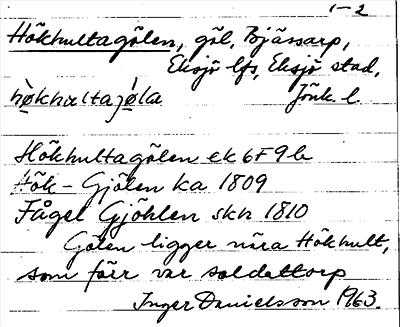 1-2
Hökhultagölen, göl, Bjässarp,
Eksjö lfs, Eksjö stad,
hø̀khultajø̀la Jönk. l.
Hökhultagölen ek 6F9b
Hök-Gjölen ka 1809
Fågel Gjöhlen skh 1810
Gölen ligger nära Hökhult,
som förr var soldattorp
Inger Danielsson 1963.